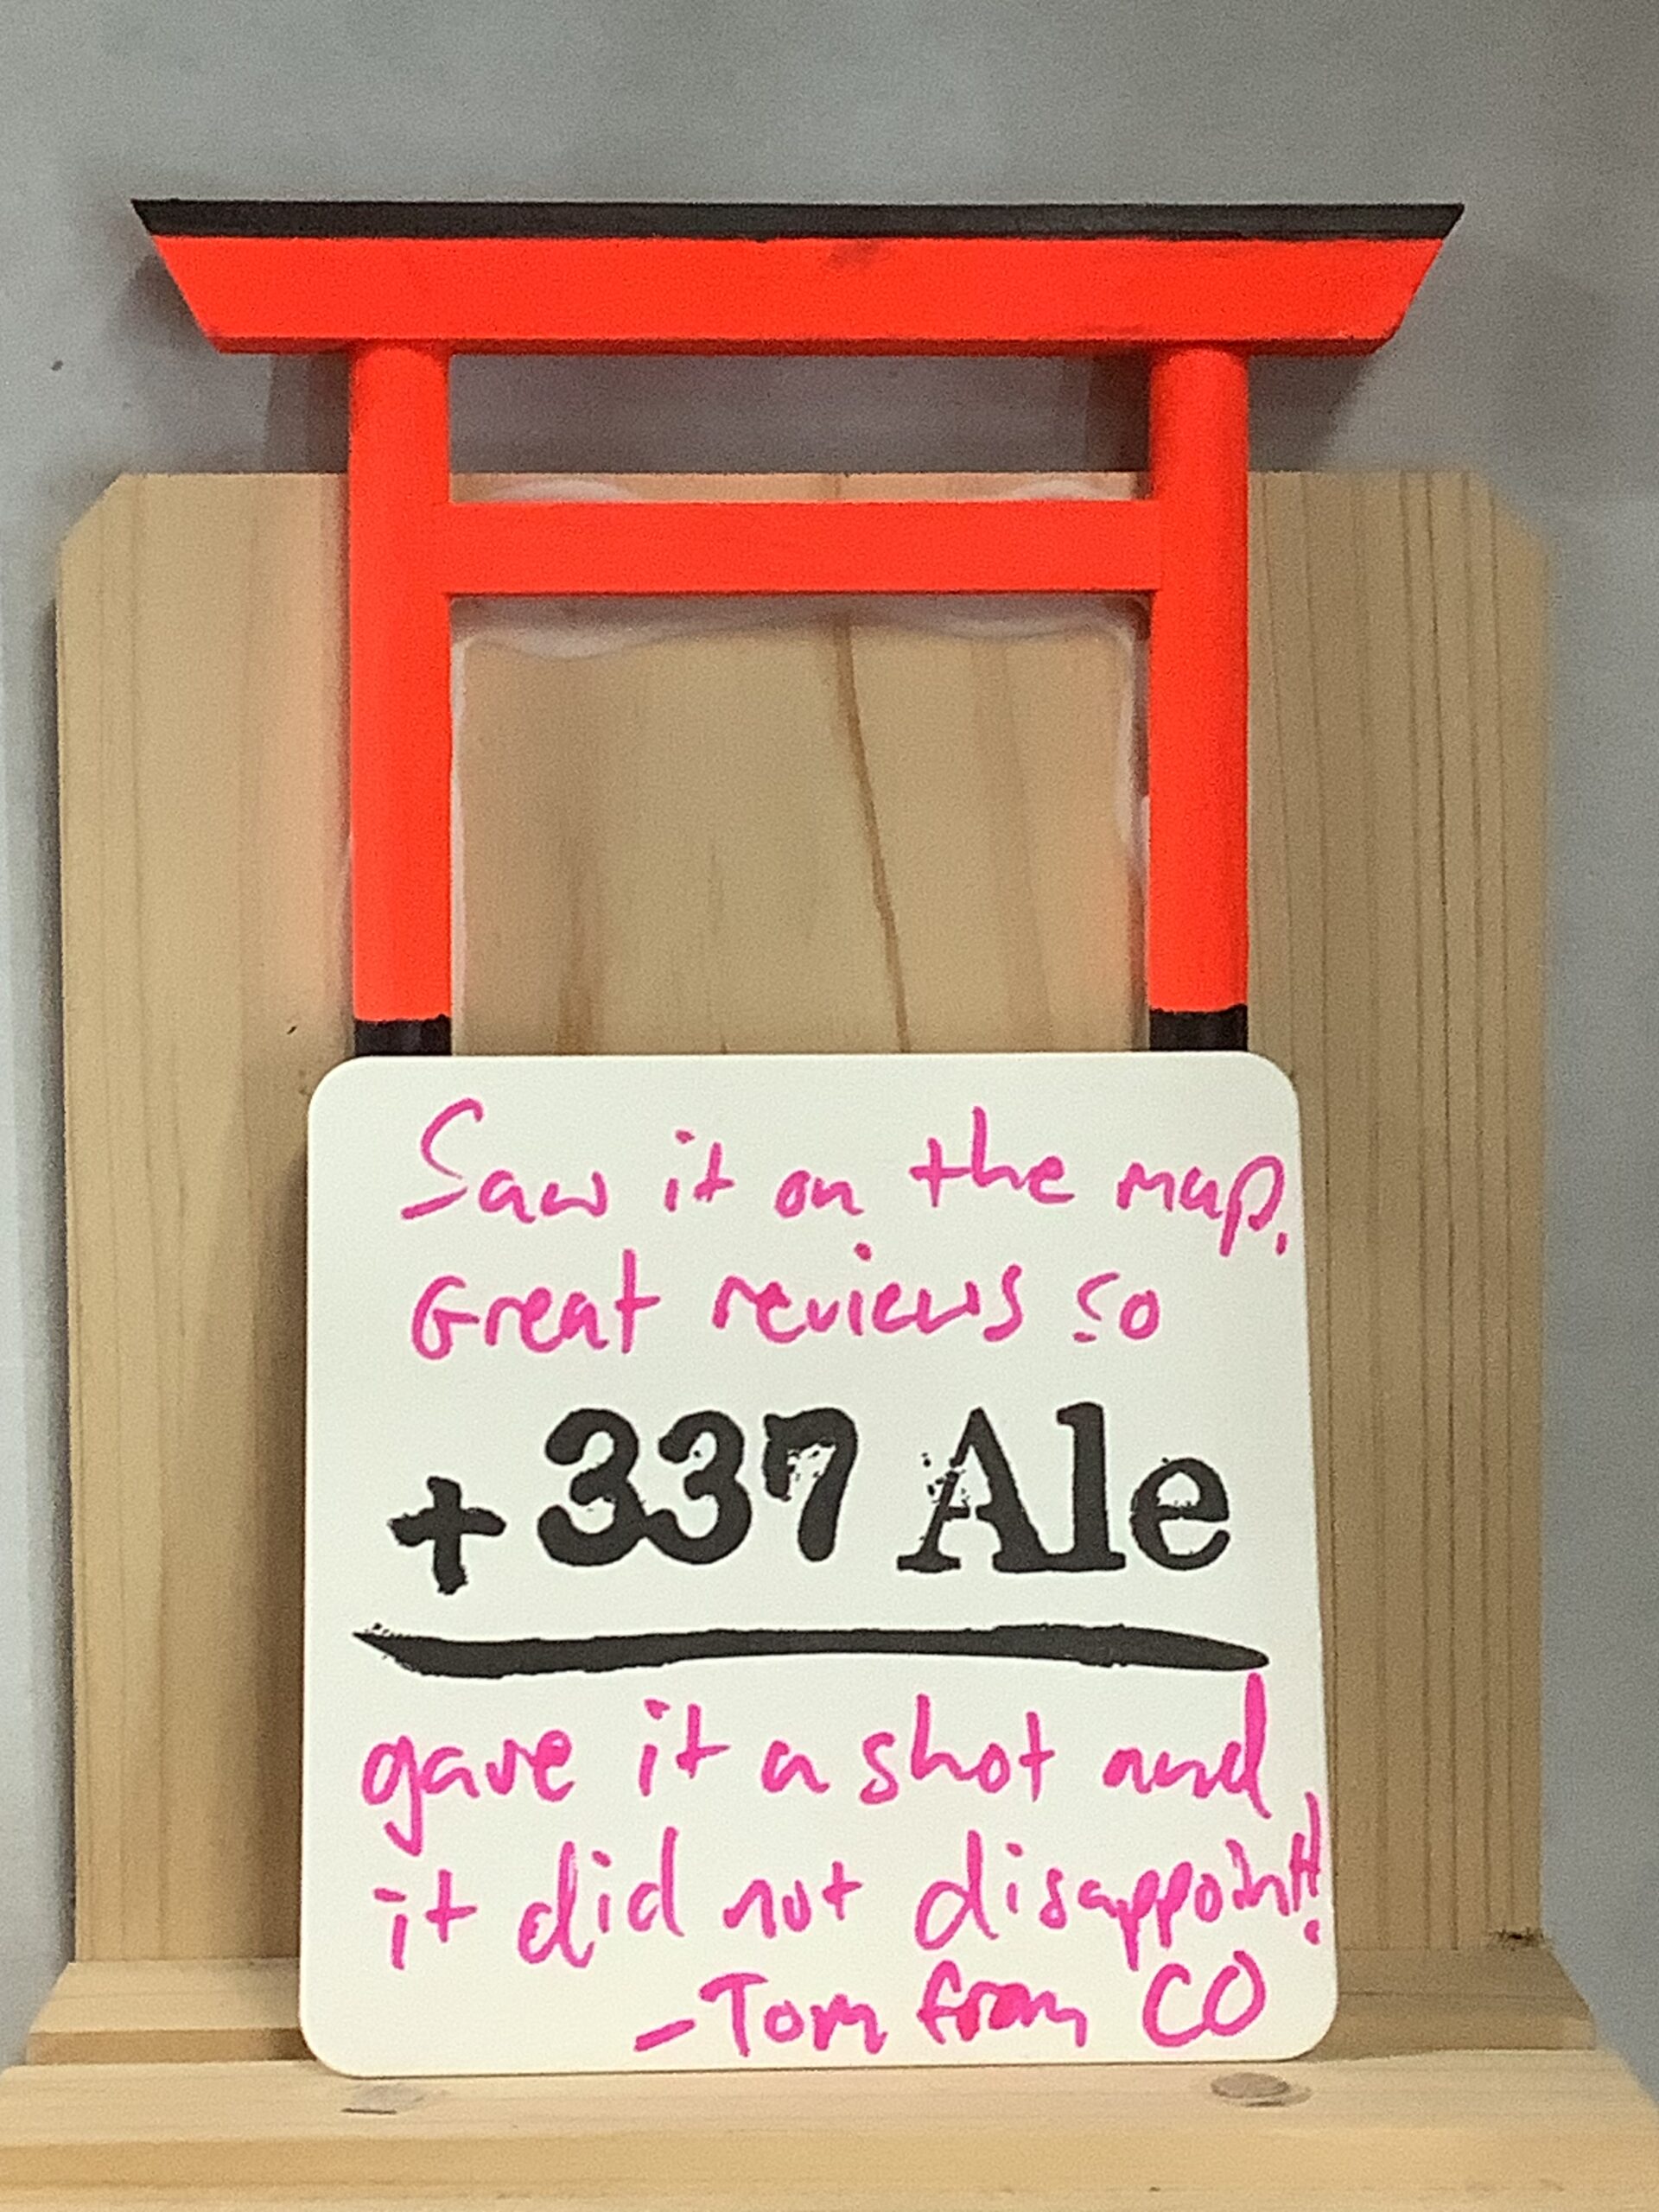 Saw it on the map.
Great reviews so
+337 Ale
gave it a shot and
it did not disappoint!!
-Tom from CO